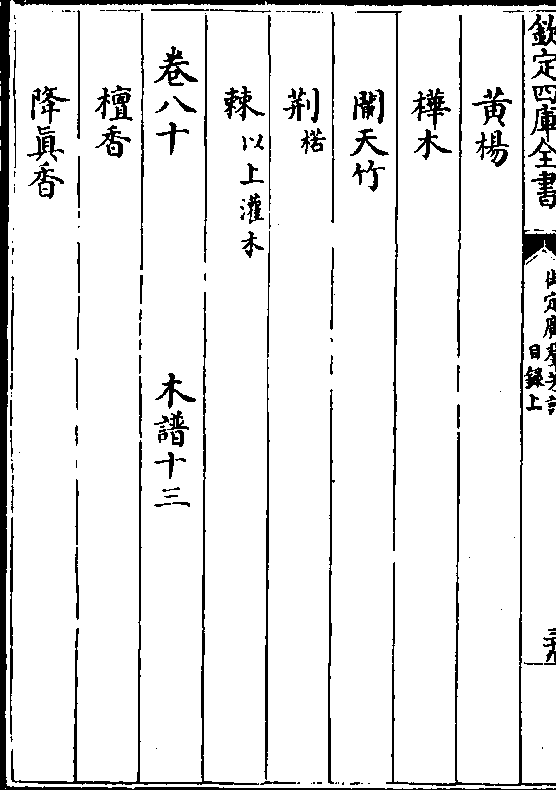 欽定四庫全書
目錄上
黃楊
樺木
闌天竹
荆楛
棘以上灌木
卷八十 木譜十三
檀香
降眞香